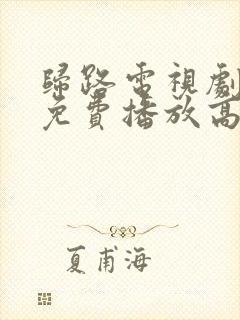 歸路電視劇
免費播放高
夏甫海